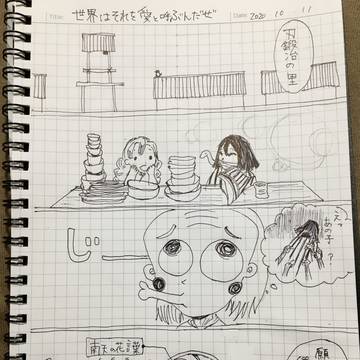 Title: 世界はそれを愛と呼ぶんだぜ
Date: 2020 10 11
刀鍛冶の里
じー
えっ
あの子
?
南天の花言葉
願